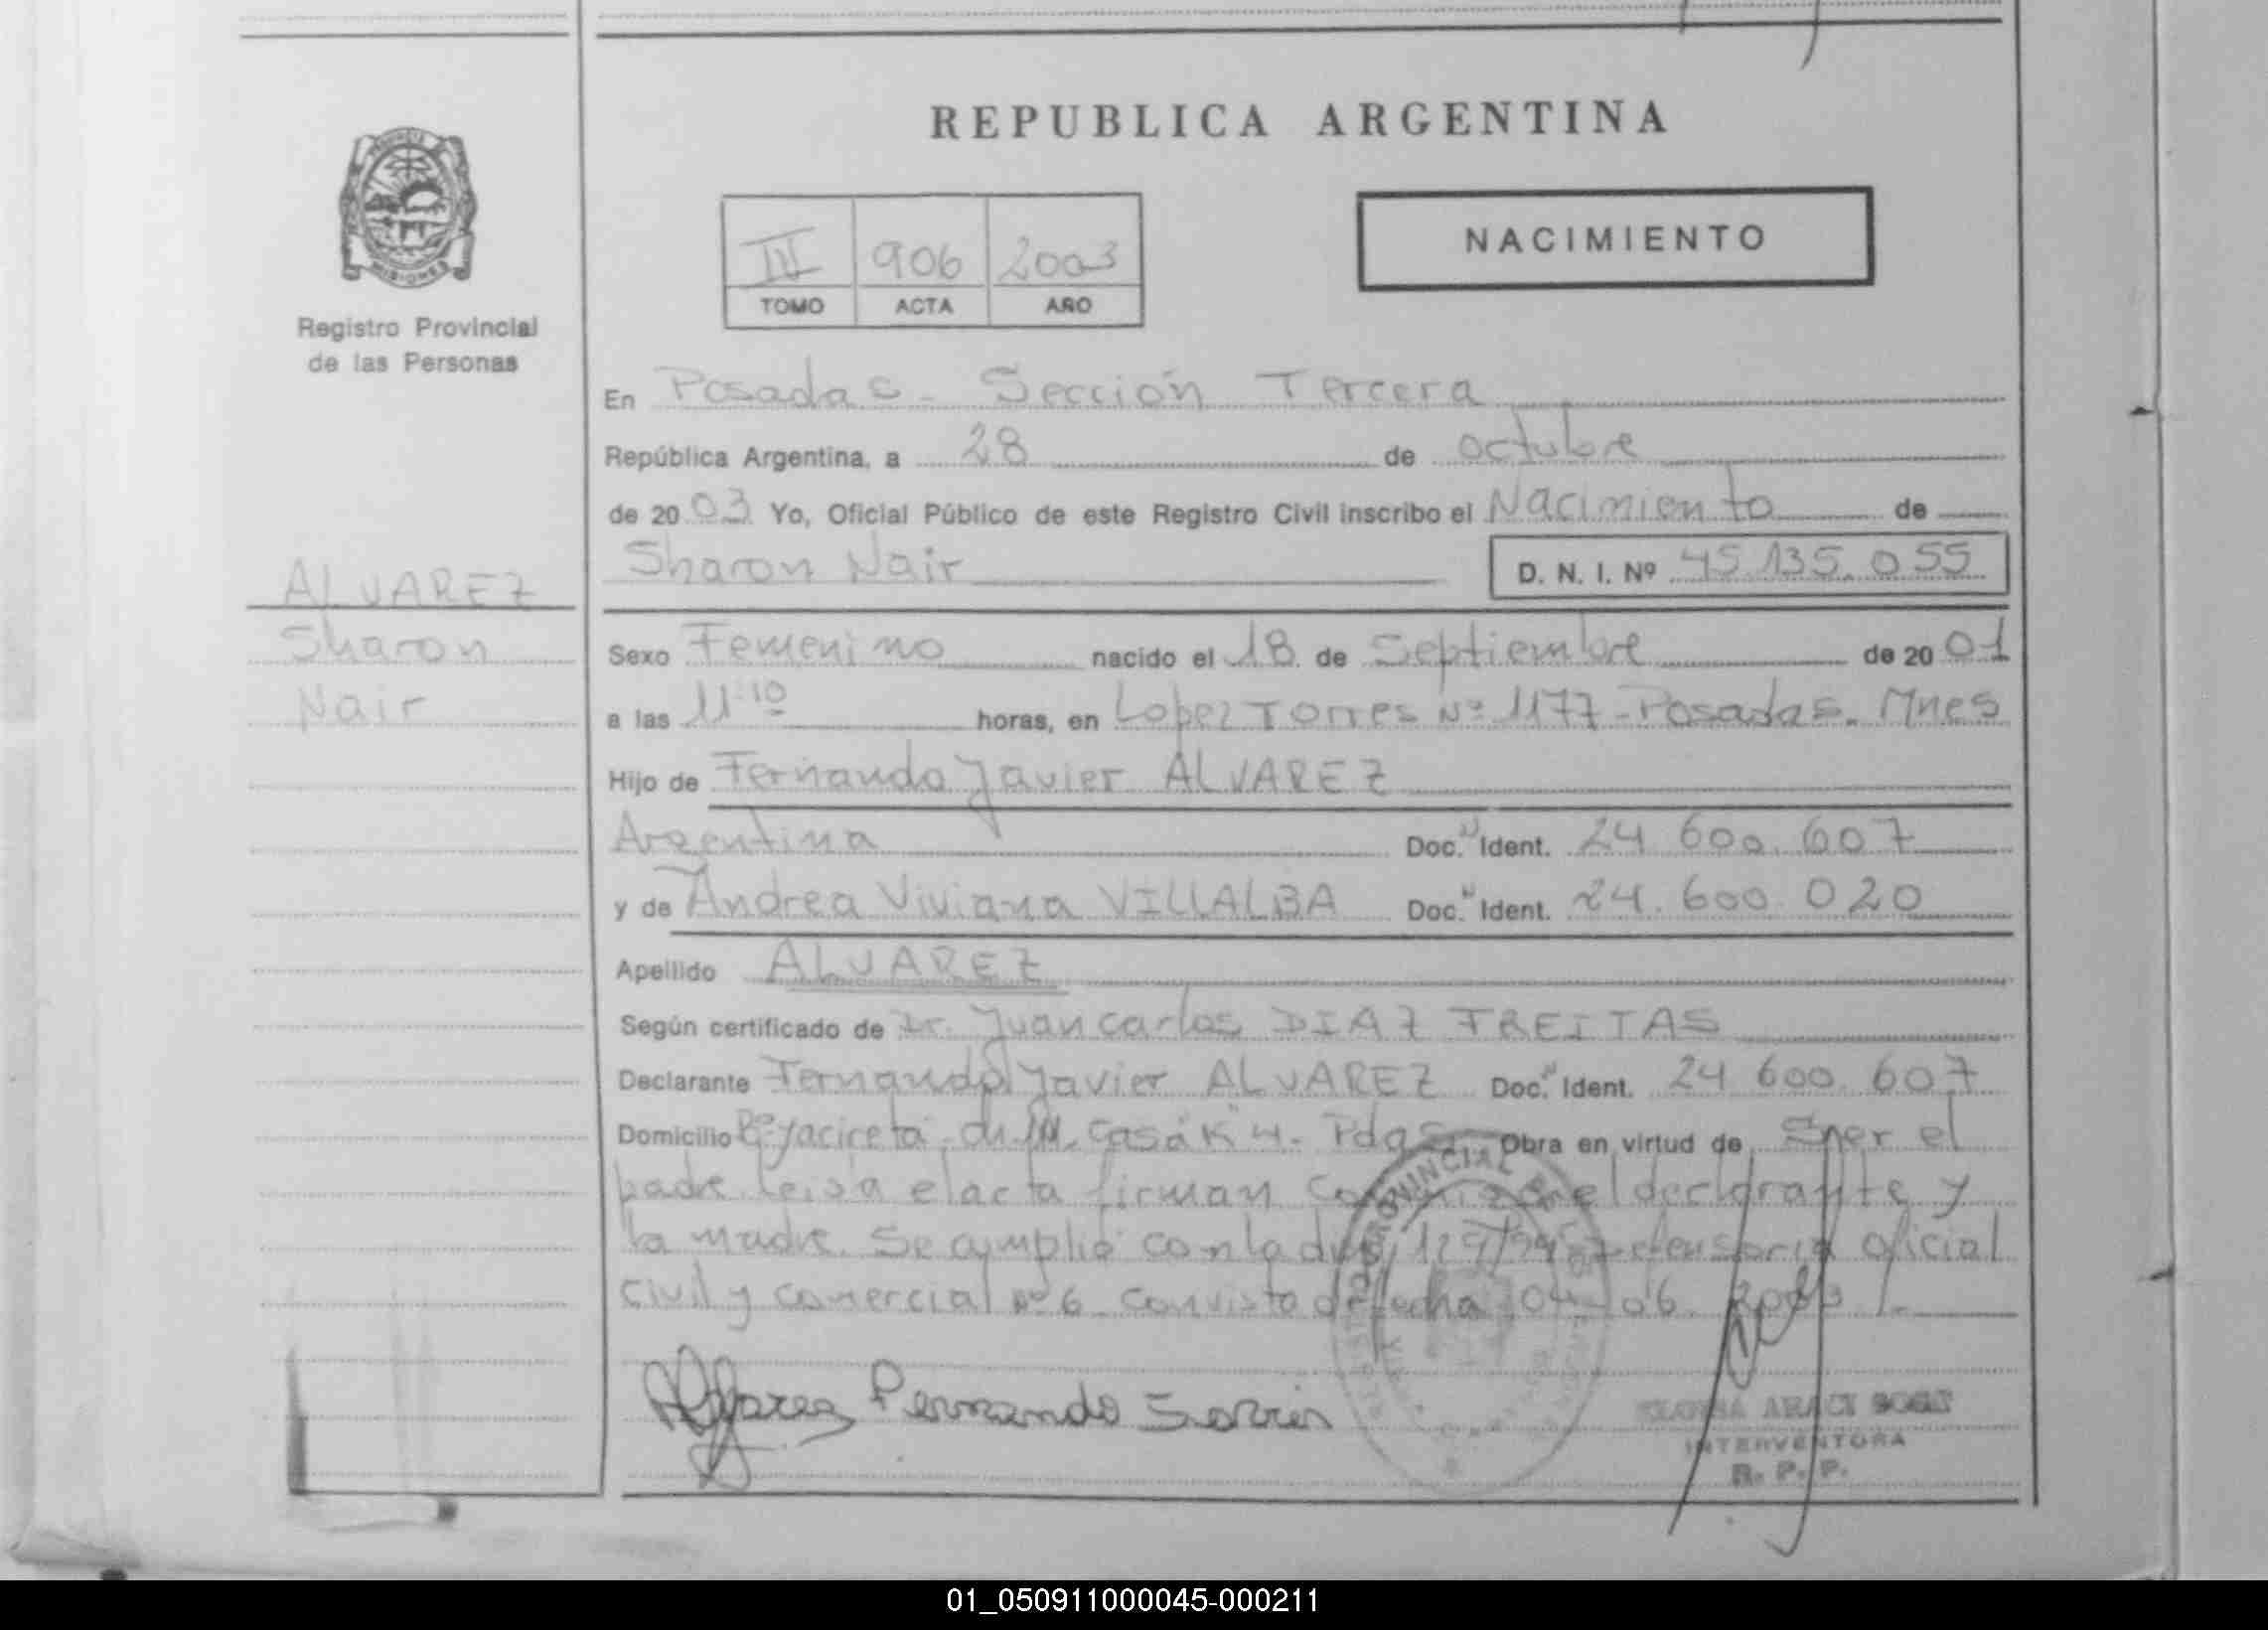 REPUBLICA ARGENTINA
NACIMIENTO
III 906 2003
TOMO ACTA AÑO
MISIONES
Registro Provincial
de las Personas
En Posadas - Sección Tercera
República Argentina, a 28 de octubre
de 2003 Yo, Oficial Público de este Registro Civil inscribo el Nacimiento de
Sharon Nair D. N. I. Nº 45.135.055
ALVAREZ
Sharon
Nair
Sexo Femenino nacido el 18 de Septiembre de 2001
a las 11:10 horas, en Lopez Torres Nº 1177 - Posadas. Mnes
Hijo de Fernando Javier ALVAREZ
Argentina Doc. Ident. 24 600.607
y de Andrea Viviana VILLALBA Doc. Ident. 24.600.020
Apellido ALVAREZ
Según certificado de Dr. Juan Carlos DIAZ FREITAS
Declarante Fernando Javier ALVAREZ Doc. Ident. 24 600.607
Domicilio Bº Yacireta Casa K 4. Pdas Obra en virtud de Ser el
padre Leída el acta firman el declarante y
la madre. Se cumplió con la defensoria oficial
civil y comercial nº 6 con vista de fecha 04-06 2003
Alvarez Fernando Javier
INTERVENTORA
R. P. P.
01_050911000045-000211